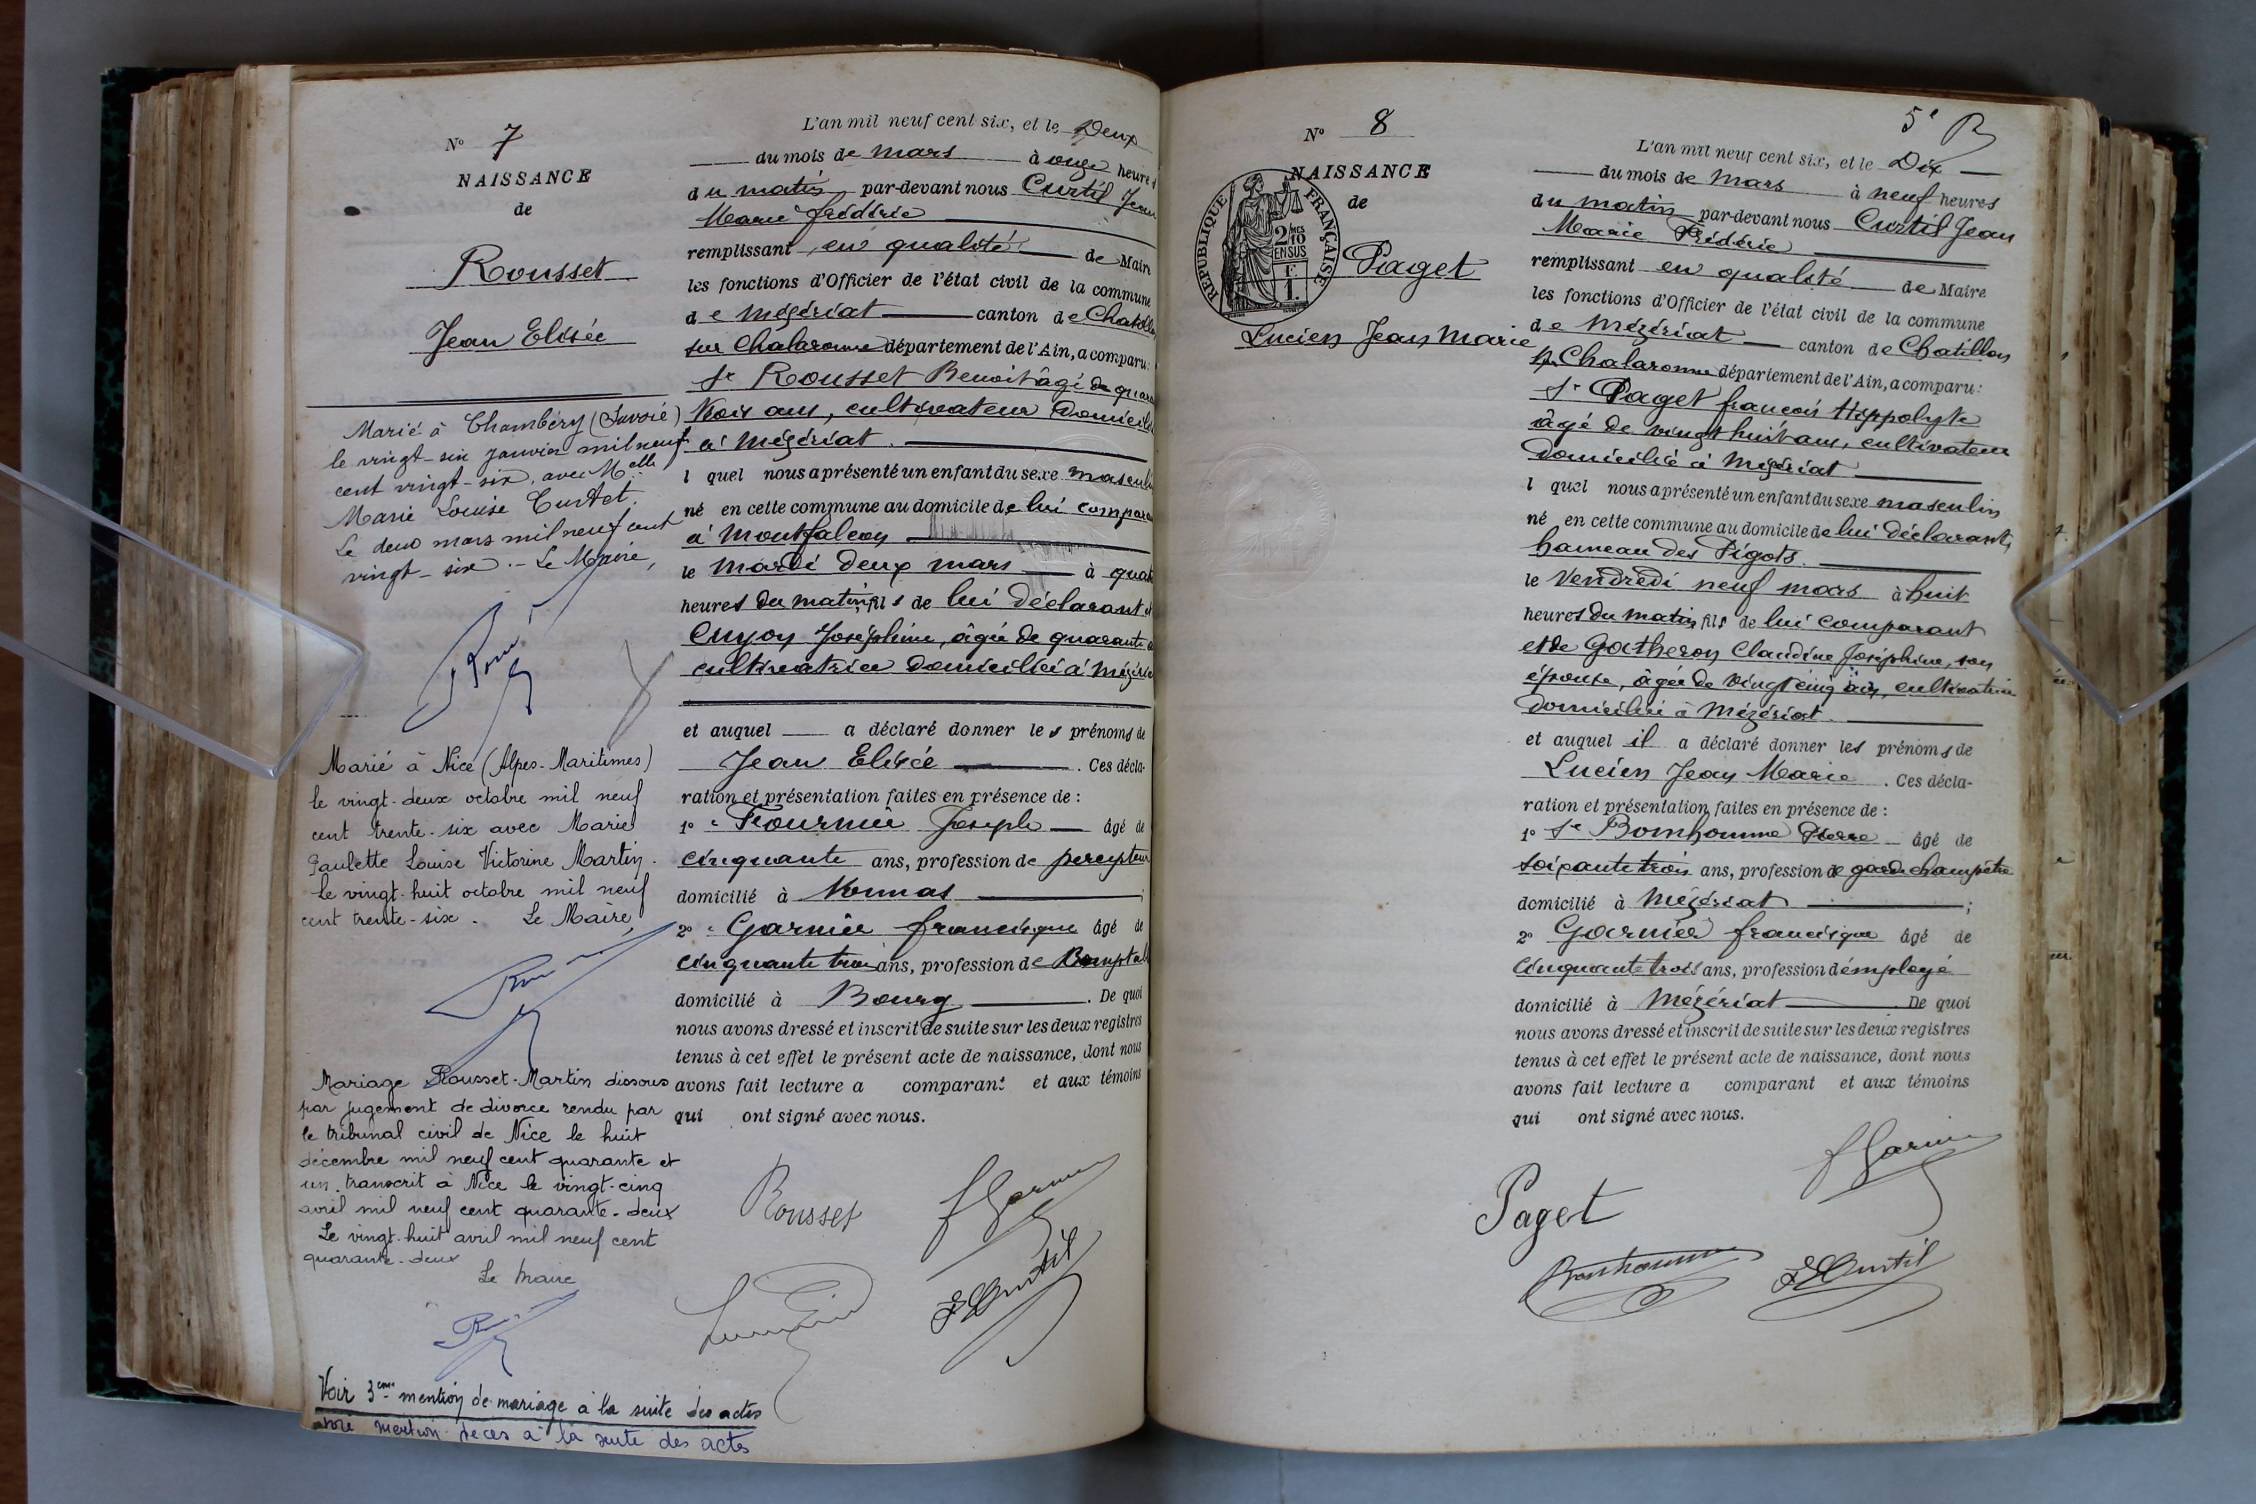 N° 7
NAISSANCE
de
Rousset
Jean Elisée
Marié à Chambéry (Savoie)
le vingt-six janvier mil neuf
cent vingt-six, avec Melle
Marie Louise Curtet.
Le deux mars mil neuf cent
vingt-six.- Le Maire,
Marié à Nice (Alpes-Maritimes)
le vingt-deux octobre mil neuf
cent trente-six avec Marie
Paulette Louise Victorine Martin.
Le vingt-huit octobre mil neuf
cent trente-six. Le Maire,
Mariage Rousset-Martin dissous
par jugement de divorce rendu par
le tribunal civil de Nice le huit
décembre mil neuf cent quarante et
un. transcrit à Nice le vingt-cinq
avril mil neuf cent quarante-deux
Le vingt-huit avril mil neuf cent
quarante-deux
Le Maire
Voir 3ème mention de mariage à la suite des actes
voir mention deces à la suite des actes
L'an mil neuf cent six, et le Deux
du mois de mars à onze heures
du matin par-devant nous Curtil Jean
Marie frédéric
remplissant en qualité de Maire
les fonctions d'Officier de l'état civil de la commune
de Mézériat canton de Chatillon
sur Chalaronne département de l'Ain, a comparu:
Sr Rousset Benoit âgé de quarante
trois ans, cultivateur domicilié
à Mézériat.
l quel nous a présenté un enfant du sexe masculin
né en cette commune au domicile de lui comparant
à Montfalcon
le mardi deux mars à quatre
heures du matin, fils de lui déclarant et
Cuyoy Joséphine, âgée de quarante
cultivatrice domiciliée à Mézériat
et auquel a déclaré donner les prénoms de
Jean Elisée. Ces décla-
ration et présentation faites en présence de :
1° Fournié Joseph âgé de
cinquante ans, profession de percepteur
domicilié à Vonnas ;
2° Garnier francisque âgé de
cinquante trois ans, profession de Comptable
domicilié à Bourg. De quoi
nous avons dressé et inscrit de suite sur les deux registres
tenus à cet effet le présent acte de naissance, dont nous
avons fait lecture a comparant et aux témoins
qui ont signé avec nous.
Rousset
f Garnier
F Curtil
5e B
N° 8
NAISSANCE
de
REPUBLIQUE FRANÇAISE
2/10 EN SUS
F.
1.
Paget
Lucien Jean Marie
L'an mil neuf cent six, et le Dix
du mois de Mars à neuf heures
du matin par-devant nous Curtil Jean
Marie Frédéric
remplissant en qualité de Maire
les fonctions d'Officier de l'état civil de la commune
de Mézériat canton de Chatillon
sr Chalaronne département de l'Ain, a comparu:
Sr Paget françois Hippolyte
âgé de vingt huit ans, cultivateur
domicilié à Mézériat
l quel nous a présenté un enfant du sexe masculin
né en cette commune au domicile de lui déclarant,
hameau des Pigots.
le Vendredi neuf mars à huit
heures du matin fils de lui comparant
et de Gatheron Claudine Joséphine, son
épouse, âgée de vingt cinq ans, cultivatrice
domiciliée à Mézériat.
et auquel il a déclaré donner les prénoms de
Lucien Jean Marie. Ces décla-
ration et présentation faites en présence de :
1° Sr Bonhomme Pierre âgé de
soixante trois ans, profession de garde champêtre
domicilié à Mézériat ;
2° Garnier francisque âgé de
cinquante trois ans, profession d'employé
domicilié à Mézériat De quoi
nous avons dressé et inscrit de suite sur les deux registres
tenus à cet effet le présent acte de naissance, dont nous
avons fait lecture a comparant et aux témoins
qui ont signé avec nous.
f Garnier
Paget
Bonhomme
F Curtil